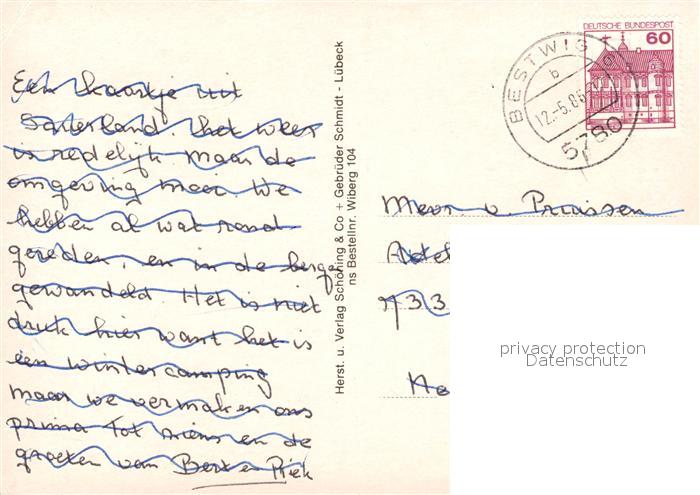 Een kaartje uit
Sauerland. Het weer
is redelijk maar de
omgeving mooi. We
hebben al wat rond
gereden, en in de bergen
gewandeld. Het is niet
druk hier want het is
een wintercamping
maar we vermaken ons
prima Tot ziens en de
groeten van Bert en Riek
Herst. u. Verlag Schöning & Co + Gebrüder Schmidt - Lübeck
ns Bestellnr. Wiberg 104
DEUTSCHE BUNDESPOST
60
BESTWIG
b
12.-5.86
5780
Mevr v. Pruissen
privacy protection
Datenschutz